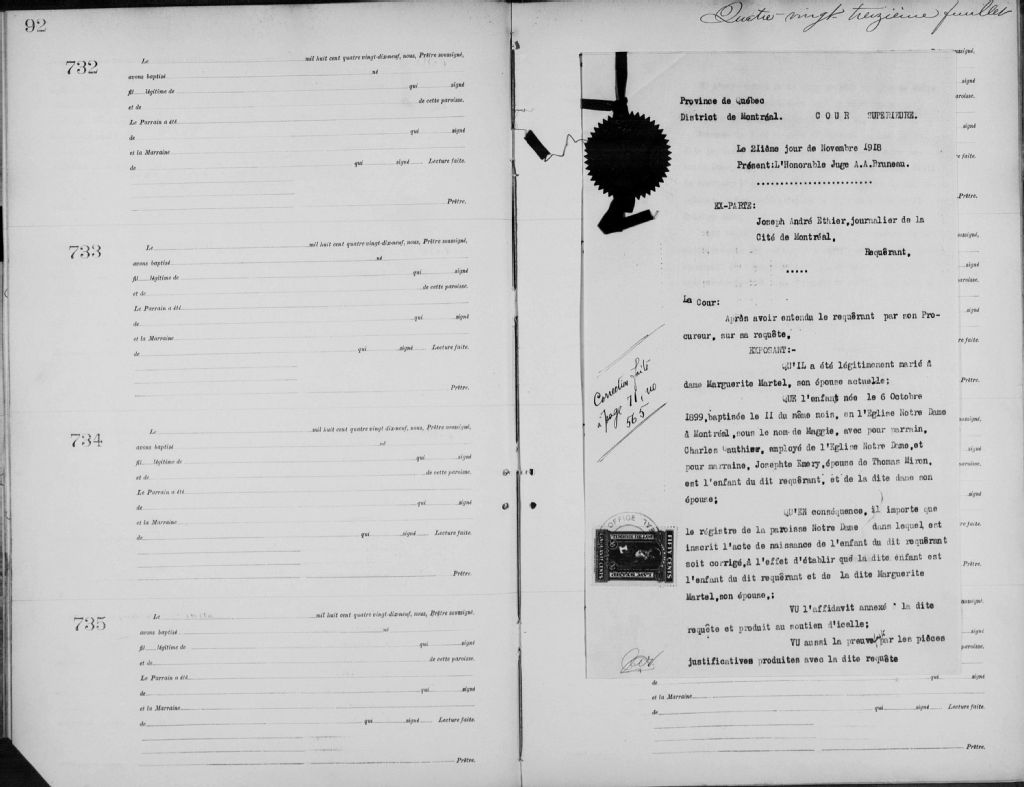 92
732
Le mil huit cent quatre vingt-dix-neuf, nous, Prêtre soussigné,
avons baptisé né
fil légitime de qui signé
et de de cette paroisse.
Le Parrain a été
de qui signé
et la Marraine
de qui signé Lecture faite.
Prêtre.
733
Le mil huit cent quatre vingt-dix-neuf, nous, Prêtre soussigné,
avons baptisé né
fil légitime de qui signé
et de de cette paroisse.
Le Parrain a été
de qui signé
et la Marraine
de qui signé Lecture faite.
Prêtre.
734
Le mil huit cent quatre vingt-dix-neuf, nous, Prêtre soussigné,
avons baptisé né
fil légitime de qui signé
et de de cette paroisse.
Le Parrain a été
de qui signé
et la Marraine
de qui signé Lecture faite.
Prêtre.
735
Le mil huit cent quatre vingt-dix-neuf, nous, Prêtre soussigné,
avons baptisé né
fil légitime de qui signé
et de de cette paroisse.
Le Parrain a été
de qui signé
et la Marraine
de qui signé Lecture faite.
Prêtre.
Quatre-vingt treizième feuillet
Province de Québec
District de Montréal. COUR SUPERIEURE.
Le 21ième jour de Novembre 1918
Présent:L'Honorable Juge A.A.Bruneau.
EX-PARTE:
Joseph André Ethier,journalier de la
Cité de Montréal,
Requérant.
La Cour:
Après avoir entendu le requérant par son Pro-
cureur, sur sa requête,
EXPOSANT:-
QU'IL a été légitimement marié à
dame Marguerite Martel, son épouse actuelle;
QUE l'enfant née le 6 Octobre
1899,baptisée le II du même mois, en l'Eglise Notre Dame
à Montréal,sous le nom de Maggie, avec pour parrain,
Charles Gauthier, employé de l'Eglise Notre Dame,et
pour marraine, Josephte Emery,épouse de Thomas Miron,
est l'enfant du dit requérant, et de la dite dame son
épouse;
QU'EN conséquence, il importe que
le régistre de la paroisse Notre Dame dans lequel est
inscrit l'acte de naissance de l'enfant du dit requérant
soit corrigé,à l'effet d'établir que la dite enfant est
l'enfant du dit requérant et de la dite Marguerite
Martel,son épouse,;
VU l'affidavit annexé à la dite
requête et produit au soutien d'icelle;
VU aussi la preuve faite par les pièces
justificatives produites avec la dite requête
Correction faite
à page 71, no
565
OFFICE
FIFTY CENTS
LAW STAMP
qui signé
et la Marraine
de qui signé Lecture faite.
Prêtre.